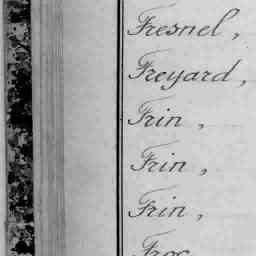 Fresnel,
Freyard,
Frin,
Frin,
Frin,